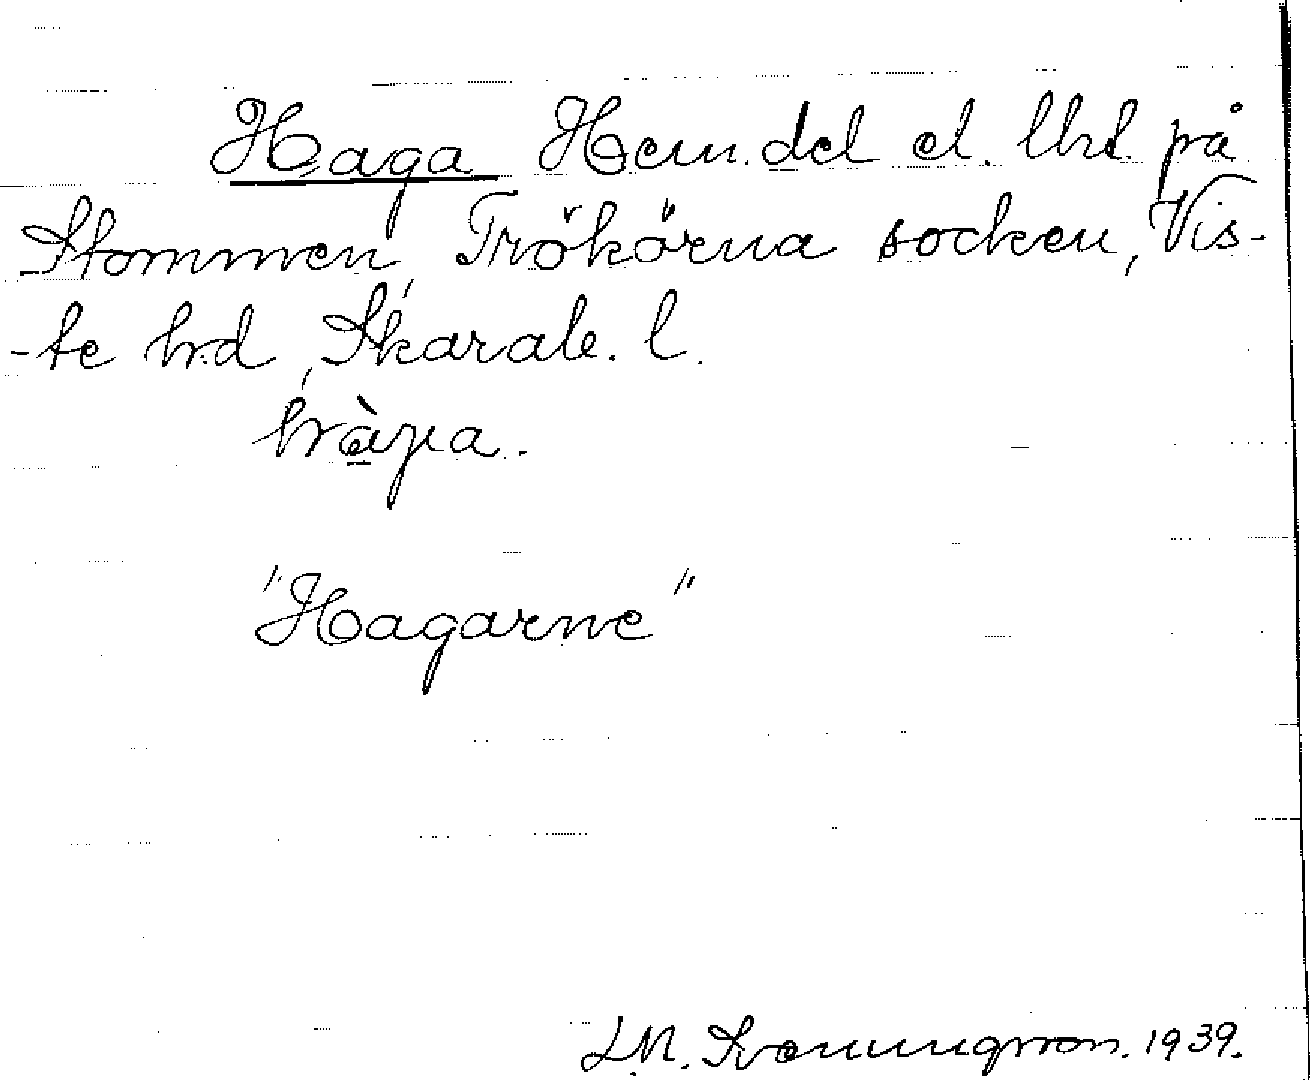 Haga Hem.del el. lht. på
Stommen, Trökörna socken, Vis-
-te hrd, Skarab. l.
hràga.
"Hagarne"
L.M. Svenungsson. 1939.